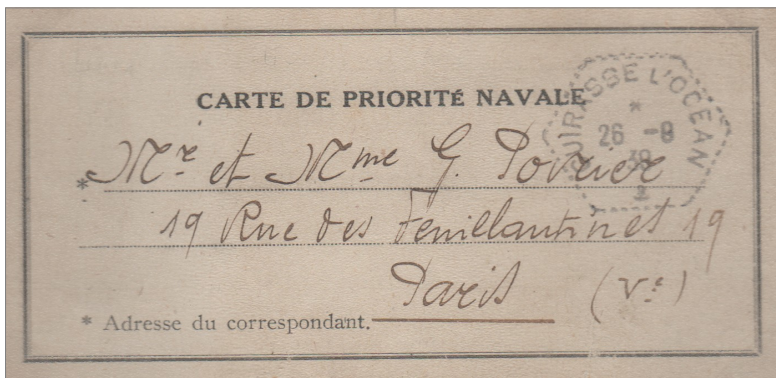 CARTE DE PRIORITÉ NAVALE
CUIRASSE L'OCEAN
*
26 -8
39
* Mr et Mme G. Poirier
19 Rue des Feuillantines 19
Paris (Ve)
* Adresse du correspondant.